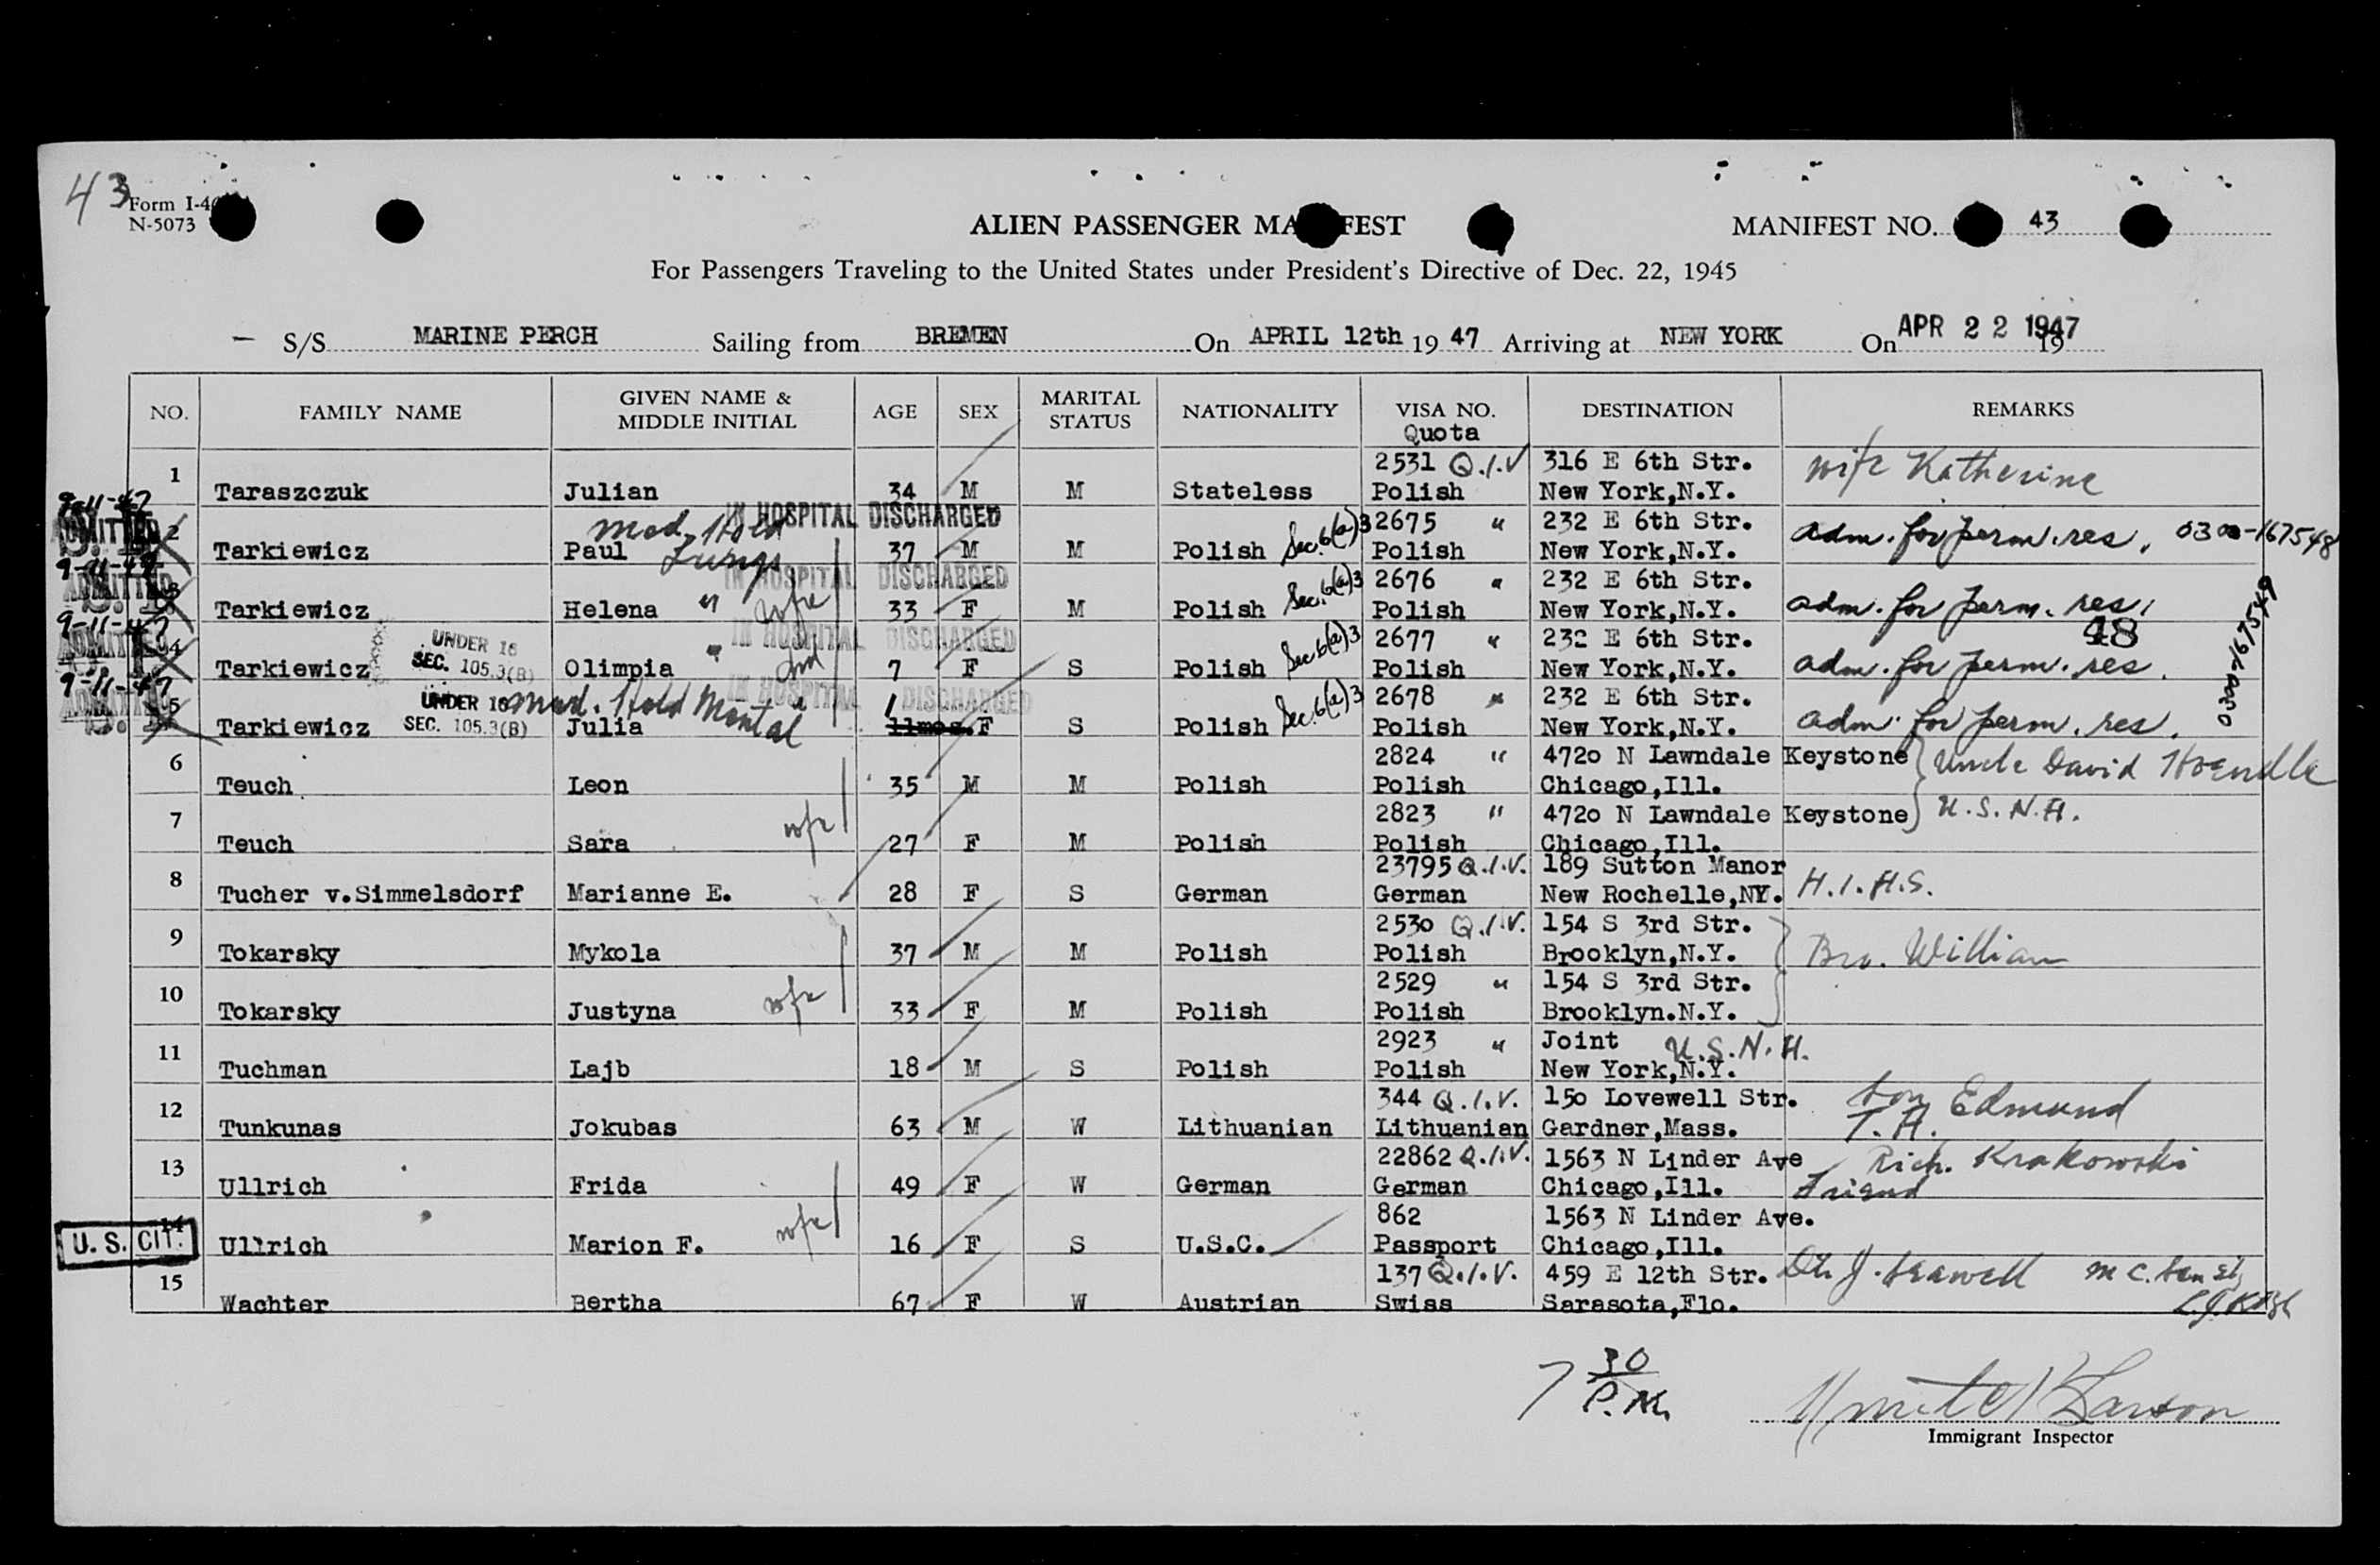 43
Form I-4
N-5073
ALIEN PASSENGER MA FEST
MANIFEST NO. 43
For Passengers Traveling to the United States under President's Directive of Dec. 22, 1945
S/S MARINE PERCH Sailing from BREMEN On APRIL 12th 19 47 Arriving at NEW YORK On APR 22 1947 19
NO. FAMILY NAME GIVEN NAME & MIDDLE INITIAL AGE SEX MARITAL STATUS NATIONALITY VISA NO. Quota DESTINATION REMARKS
1 2531 Q.I.V 316 E 6th Str. wife Katherine
Taraszczuk Julian 34 M M Stateless Polish New York,N.Y.
9-11-47 IN HOSPITAL DISCHARGED
ADMITTED 2 Med. Hold 2675 " 232 E 6th Str. adm. for perm. res. 0300-167548
Tarkiewicz Paul Lungs 37 M M Polish Sec.6(a)3 Polish New York,N.Y.
9-11-47 IN HOSPITAL DISCHARGED
ADMITTED 3 2676 " 232 E 6th Str.
Tarkiewicz Helena " wfe 33 F M Polish Sec.6(a)3 Polish New York,N.Y. adm. for perm. res.
9-11-47 IN HOSPITAL DISCHARGED 48
ADMITTED 4 UNDER 16 2677 " 232 E 6th Str.
Tarkiewicz SEC. 105.3(B) Olimpia " 7 F S Polish Sec.6(a)3 Polish New York,N.Y. adm. for perm. res.
9-11-47 IN HOSPITAL DISCHARGED
ADMITTED 5 UNDER 16 Med. Hold Mental 1 2678 " 232 E 6th Str.
Tarkiewicz SEC. 105.3(B) Julia 11mos. F S Polish Sec.6(a)3 Polish New York,N.Y. adm. for perm. res.
6 2824 " 4720 N Lawndale Keystone Uncle David
Teuch Leon 35 M M Polish Polish Chicago,Ill.
7 2823 " 4720 N Lawndale Keystone U.S.N.A.
Teuch Sara wfe 27 F M Polish Polish Chicago,Ill.
8 23795 Q.I.V. 189 Sutton Manor
Tucher v.Simmelsdorf Marianne E. 28 F S German German New Rochelle,NY. H.I.A.S.
9 2530 Q.I.V. 154 S 3rd Str.
Tokarsky Mykola 37 M M Polish Polish Brooklyn,N.Y. Bro. William
10 2529 " 154 S 3rd Str.
Tokarsky Justyna wfe 33 F M Polish Polish Brooklyn.N.Y.
11 2923 " Joint U.S.N.A.
Tuchman Lajb 18 M S Polish Polish New York,N.Y.
12 344 Q.I.V. 150 Lovewell Str. Son Edmund
Tunkunas Jokubas 63 M W Lithuanian Lithuanian Gardner,Mass. T.A.
13 22862 Q.I.V. 1563 N Linder Ave Rich. Krakowski
Ullrich Frida 49 F W German German Chicago,Ill. Friend
14 862 1563 N Linder Ave.
U.S. CIT. Ullrich Marion F. wfe 16 F S U.S.C. Passport Chicago,Ill.
15 137 Q.I.V. 459 E 12th Str.
Wachter Bertha 67 F W Austrian Swiss Sarasota,Flo.
7 30 P.M.
Larson
Immigrant Inspector